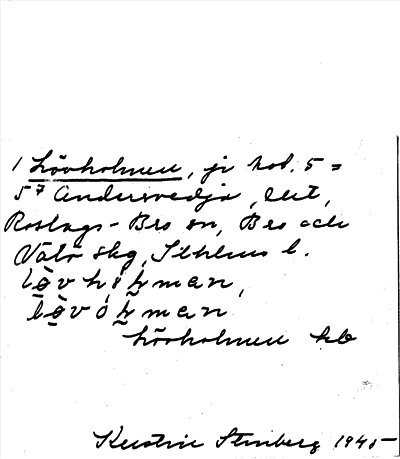 1 Lövholmen, ji kod. 5 =
5⁷ Andersvedja, lit,
Roslags-Bro sn, Bro och
Vätö skg, Sthlms l.
løvhɷlman,
løvɷlman
Lövholmen kb
Kerstin Stenberg 1945